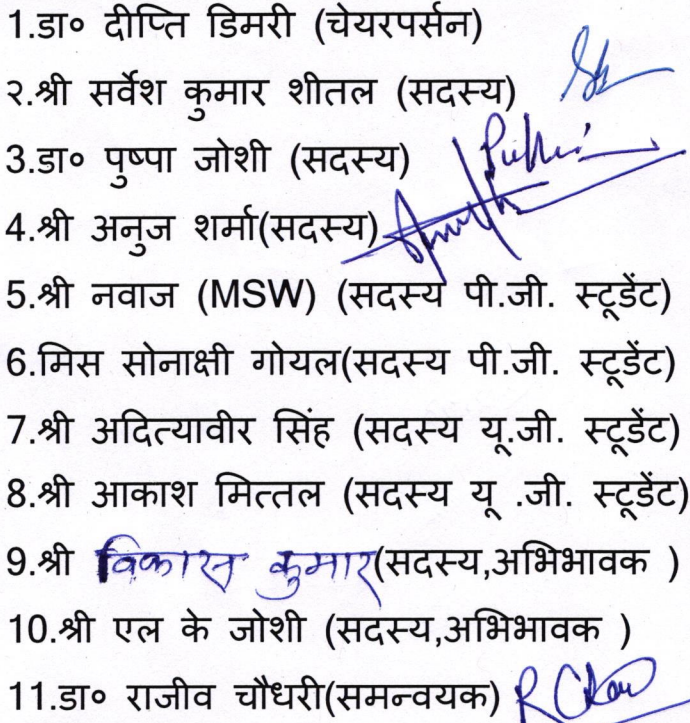 1.डा० दीप्ति डिमरी (चेयरपर्सन)
२.श्री सर्वेश कुमार शीतल (सदस्य)
3.डा० पुष्पा जोशी (सदस्य)
4.श्री अनुज शर्मा(सदस्य)
5.श्री नवाज (MSW) (सदस्य पी.जी. स्टूडेंट)
6.मिस सोनाक्षी गोयल(सदस्य पी.जी. स्टूडेंट)
7.श्री अदित्यावीर सिंह (सदस्य यू.जी. स्टूडेंट)
8.श्री आकाश मित्तल (सदस्य यू .जी. स्टूडेंट)
9.श्री विकास कुमार(सदस्य,अभिभावक )
10.श्री एल के जोशी (सदस्य,अभिभावक )
11.डा० राजीव चौधरी(समन्वयक)